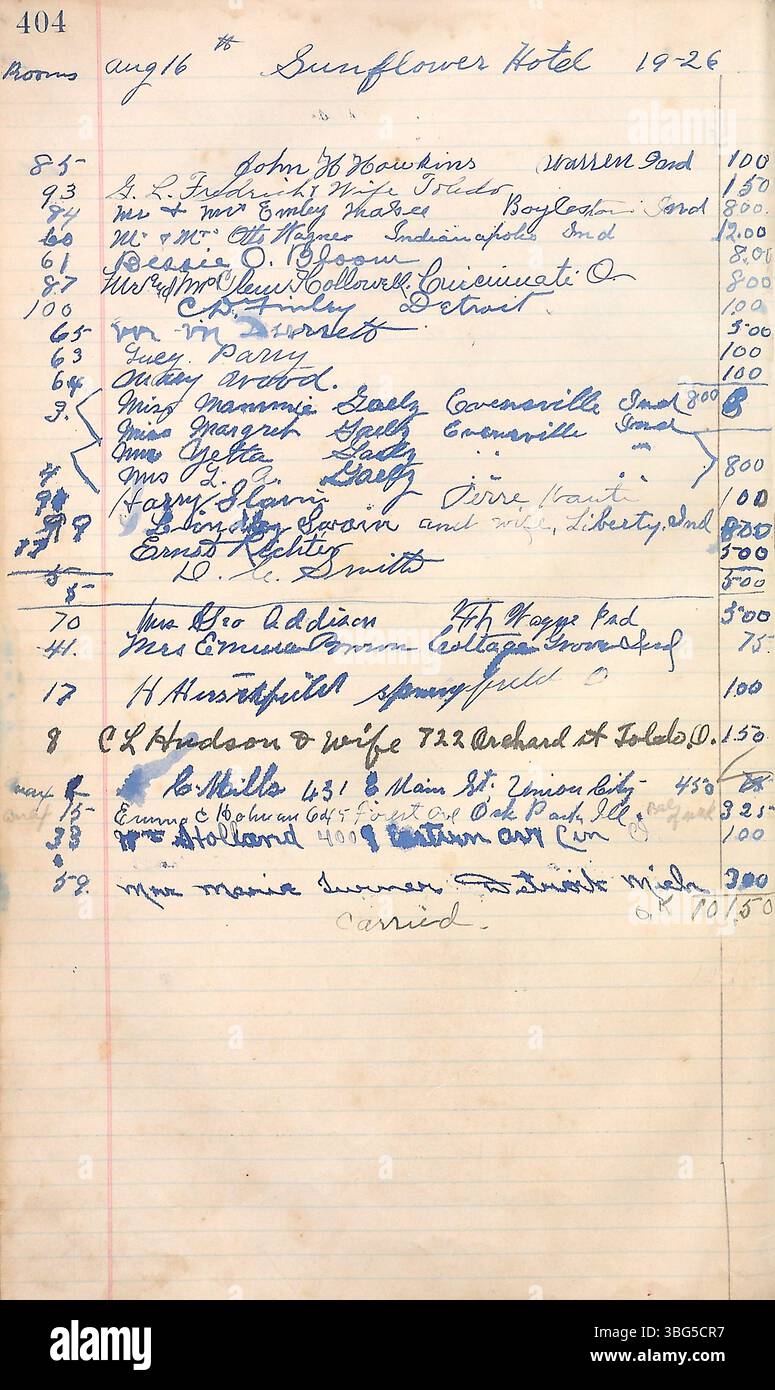 404
Rooms Aug 16th Sunflower Hotel 19-26
85 John H Hawkins Warren Ind 100
93 G. L. Fredrick & Wife Toledo 150
84 Mr & Mrs Emley Boyleston Ind 800
60 Mr & Mrs Otto Wagner Indianapolis Ind 12.00
61 Bessie O. Bloom 8.00
87 Mr and Mrs Clem Hollowell. Cincinnati O 800
100 C D Finley Detroit 100
65 500
63 Lucy Parry 100
64 Mary Wood. 100
3. Miss Mammie Gaelz Evensville Ind 800
Miss Margret Gaelz Evensville Ind
Miss Yetta Gaelz " "
4 Mrs L. A. Gaelz " " 800
Harry Slavin Terre Haute 100
99 Lindley Swain and wife, Liberty, Ind 800
Ernest Richter 500
5 D. C. Smith 500
70 Mrs Geo Addison Ft Wayne Ind 500
41. Mrs Emma Brown Cottage Grove Ind 75
17 H Hirschfield Springfield O 100
8 C L Hudson & Wife 722 Orchard st Toledo, O. 150
C. Mills 431 E Main St. Union City 450
15 Emma C Holman 645 Forest Ave Oak Park Ill. 325
33 Wm Holland 400 Eastern Ave Cin O 100
59. Mrs Marie Turner Detroit Mich 300
OK 101.50
Carried.
alamy
Image ID: 3BG5CR7
www.alamy.com